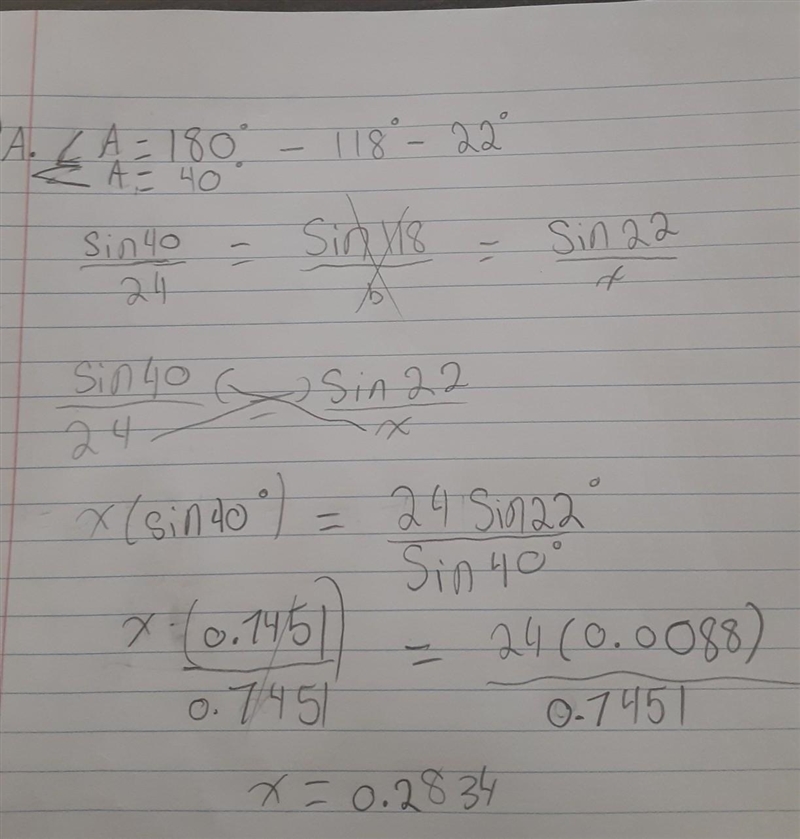 A. ∠A = 180° - 118° - 22°
∠A = 40°
Sin40/24 = Sin118/b = Sin22/x
Sin40/24 = Sin22/x
x(sin40°) = 24 Sin22°/Sin40°
x·(0.7451)/0.7451 = 24(0.0088)/0.7451
x = 0.2834